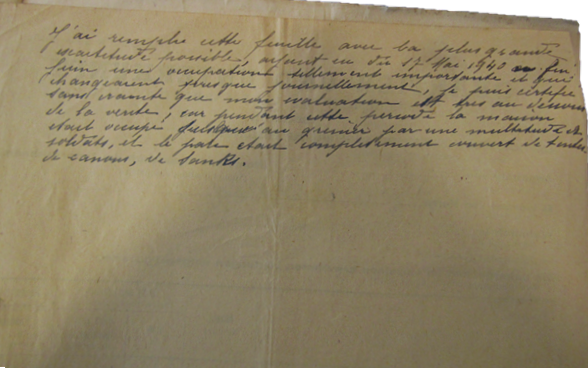 J'ai remplis cette feuille avec la plus grande
exactitude possible, ayant eu du 17 Mai 1940 au fin
Juin une occupation tellement importante et qui
changeaient presque journellement, je puis certifié
sans crainte que mon evaluation est tres au dessous
de la verite, car pendant cette periode la maison
etait occupé jusqu'au grenier par une multitude de
soldats, et le parc etait completement couvert de tentes
de canons, de tanks.